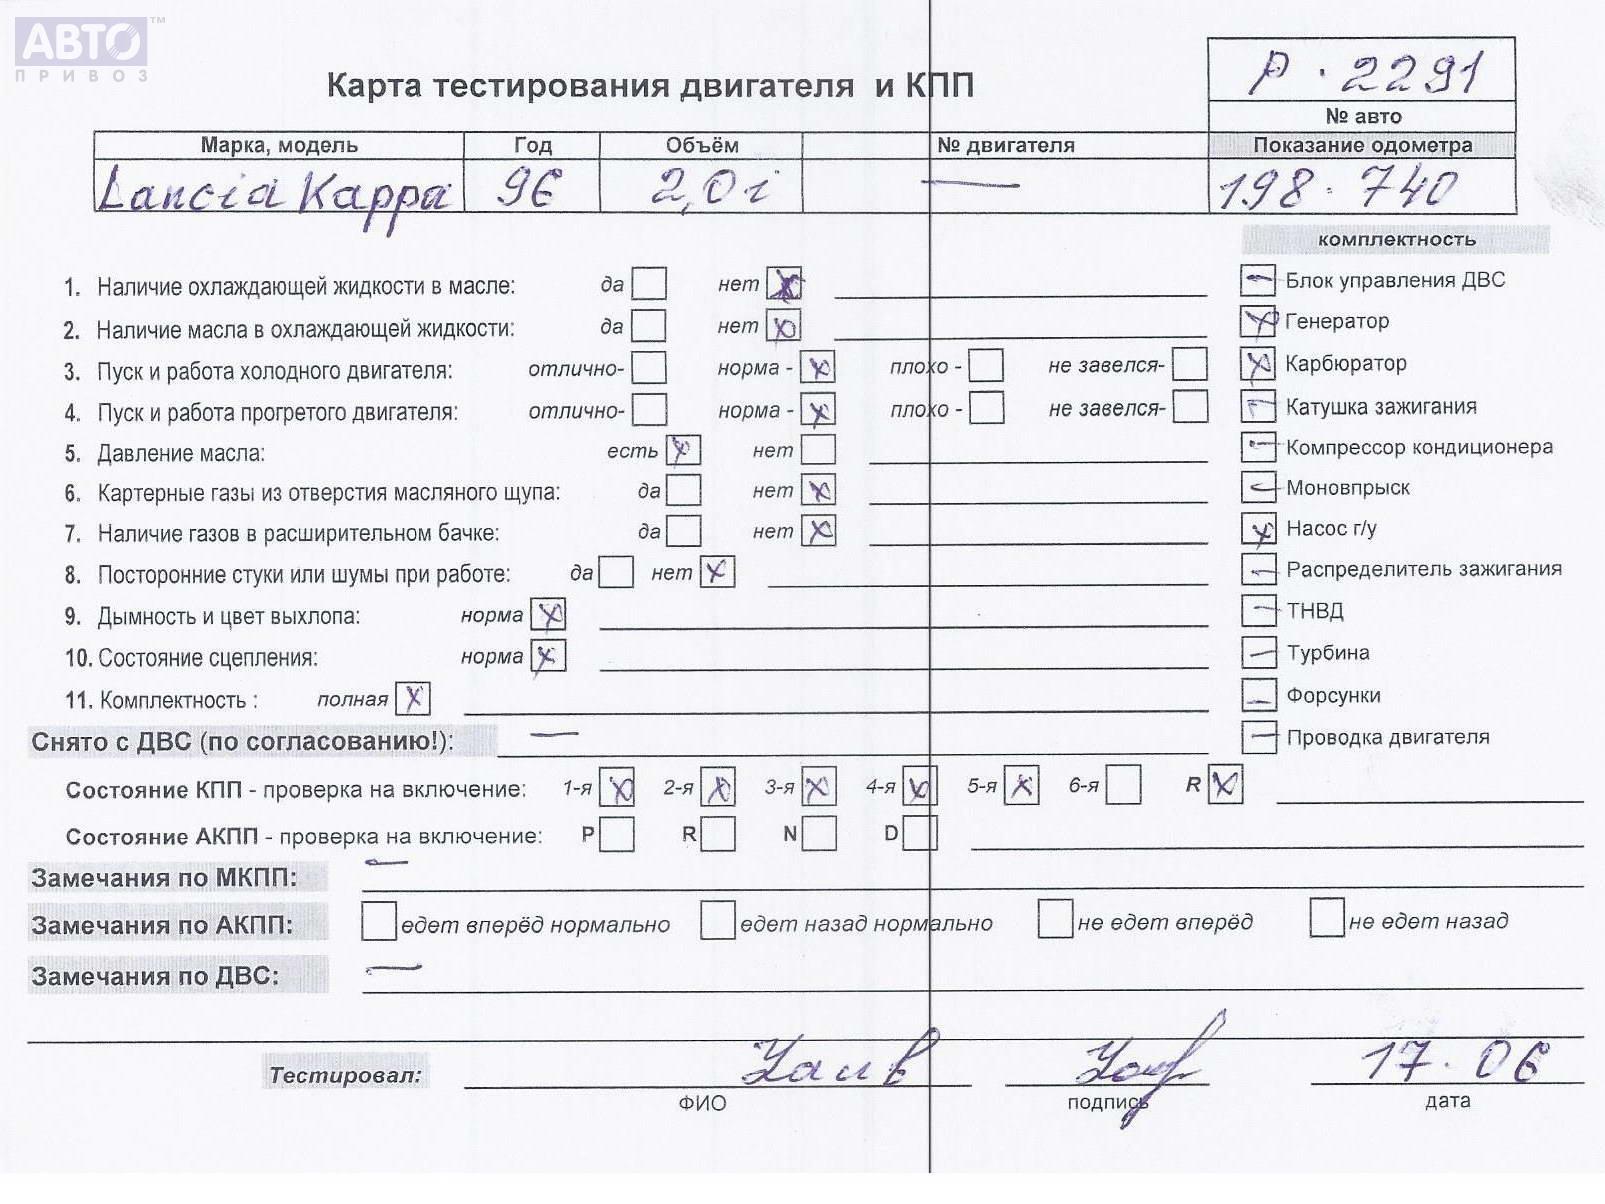 АВТО™
ПРИВОЗ
Карта тестирования двигателя и КПП
Р·2291
№ авто
Марка, модель Год Объём № двигателя Показание одометра
Lancia Kappa 96 2,0i — 198·740
комплектность
1. Наличие охлаждающей жидкости в масле: да нет x
Блок управления ДВС
2. Наличие масла в охлаждающей жидкости: да нет x
Генератор
3. Пуск и работа холодного двигателя: отлично- норма - x плохо - не завелся-
Карбюратор
4. Пуск и работа прогретого двигателя: отлично- норма - x плохо - не завелся-
Катушка зажигания
5. Давление масла: есть x нет
Компрессор кондиционера
6. Картерные газы из отверстия масляного щупа: да нет x
Моновпрыск
7. Наличие газов в расширительном бачке: да нет x
Насос г/у
8. Посторонние стуки или шумы при работе: да нет x
Распределитель зажигания
9. Дымность и цвет выхлопа: норма x
ТНВД
10. Состояние сцепления: норма x
Турбина
11. Комплектность : полная x
Форсунки
Снято с ДВС (по согласованию!): —
Проводка двигателя
Состояние КПП - проверка на включение: 1-я x 2-я x 3-я x 4-я x 5-я x 6-я R x
Состояние АКПП - проверка на включение: P R N D
Замечания по МКПП: —
Замечания по АКПП: едет вперёд нормально едет назад нормально не едет вперёд не едет назад
Замечания по ДВС: —
Тестировал: 17.06
ФИО подпись дата